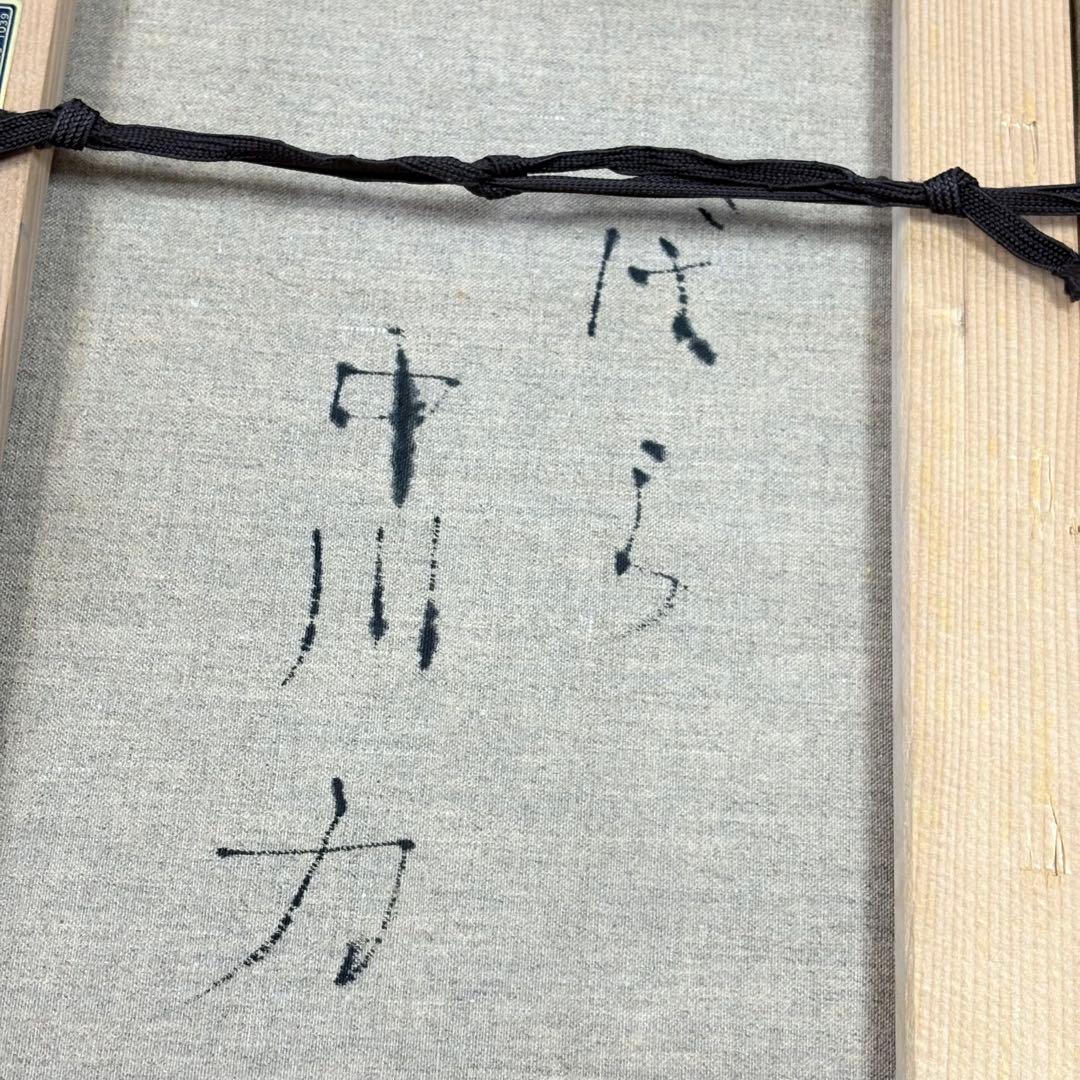 ばら
中川力
1039